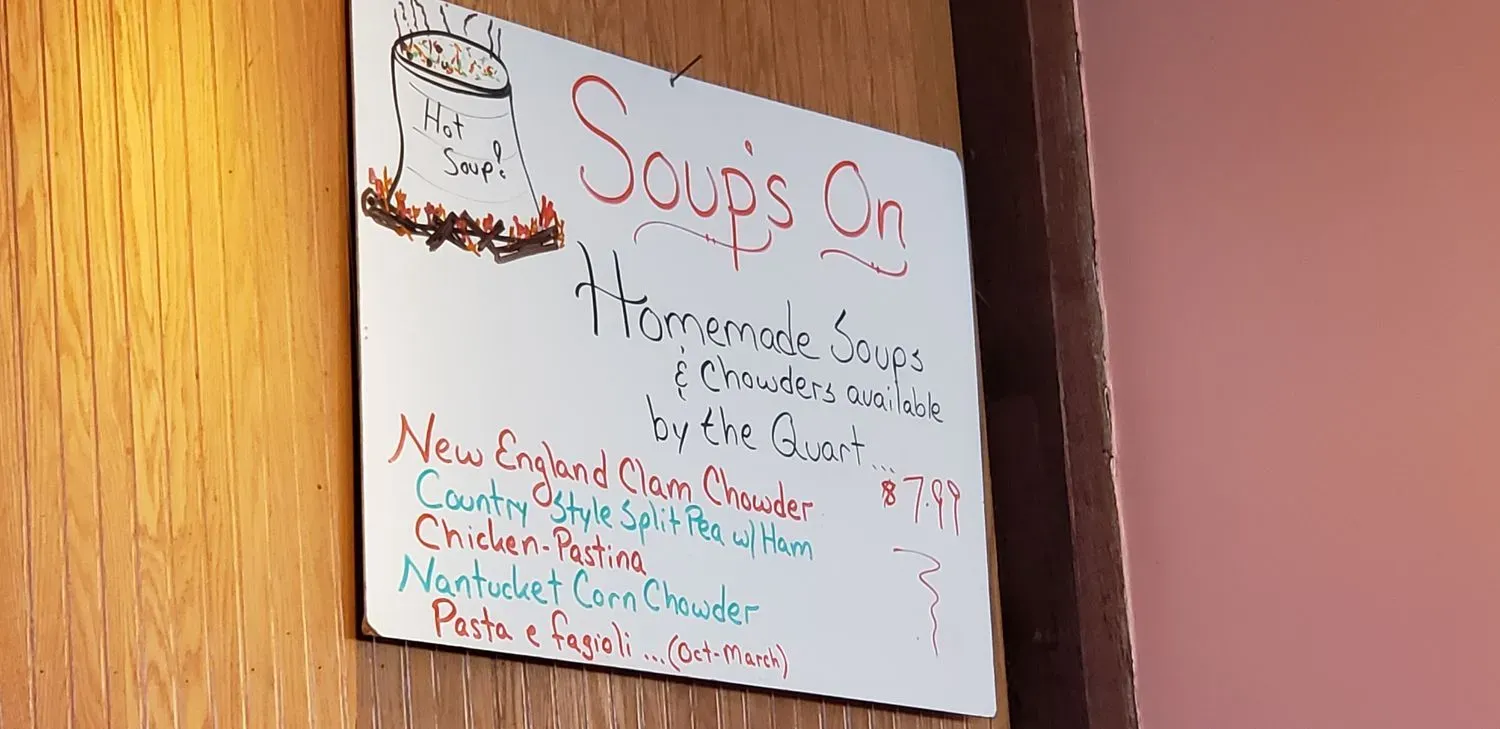 Hot
Soup!
Soup's On
Homemade Soups
& Chowders available
by the Quart...
New England Clam Chowder $7.99
Country Style Split Pea w/ Ham
Chicken-Pastina
Nantucket Corn Chowder
Pasta e fagioli ... (Oct-March)